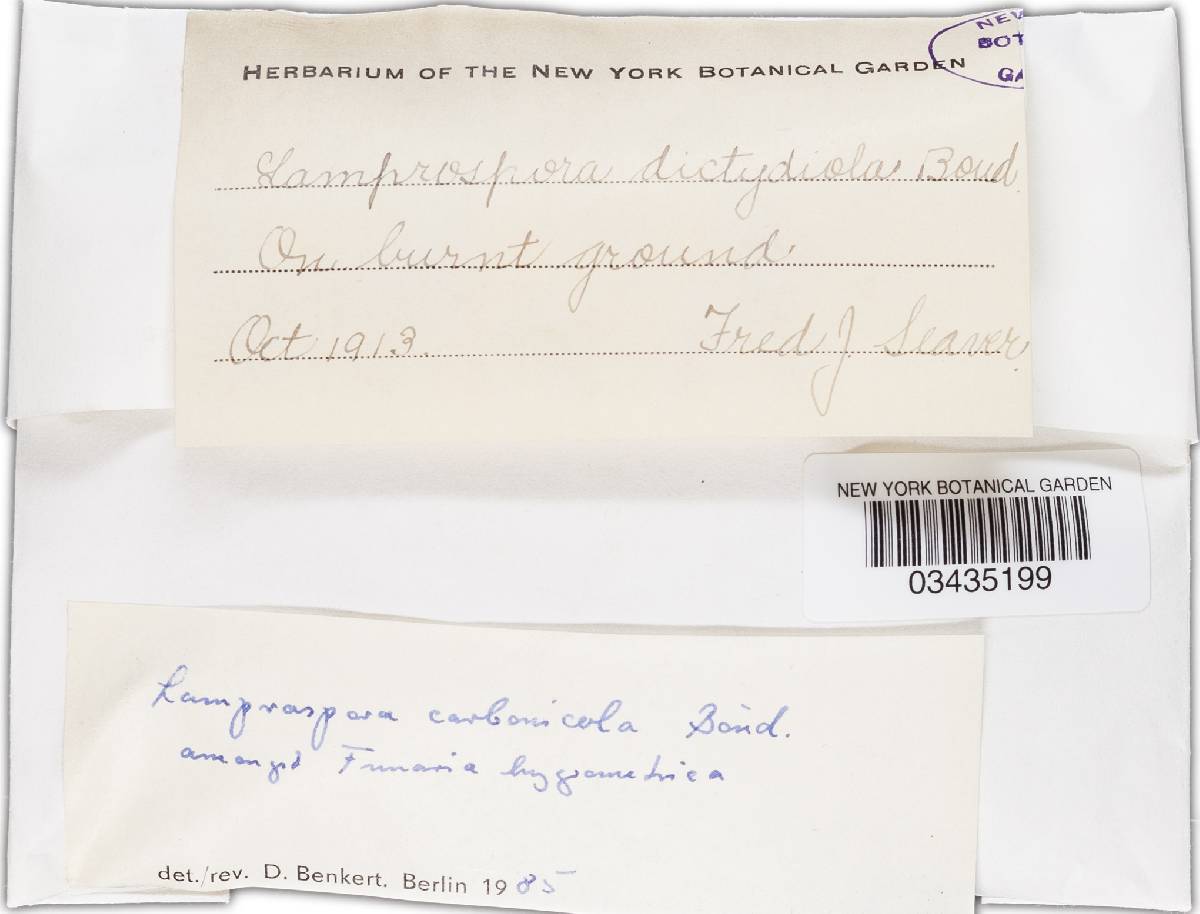 HERBARIUM OF THE NEW YORK BOTANICAL GARDEN
NEW
BOT
GA
Lamprospora dictydiola Boud.
On burnt ground.
Oct 1913. Fred J Seaver.
NEW YORK BOTANICAL GARDEN
03435199
Lamprospora carbonicola Boud.
amongst Funaria hygrometrica
det./rev. D. Benkert. Berlin 1985